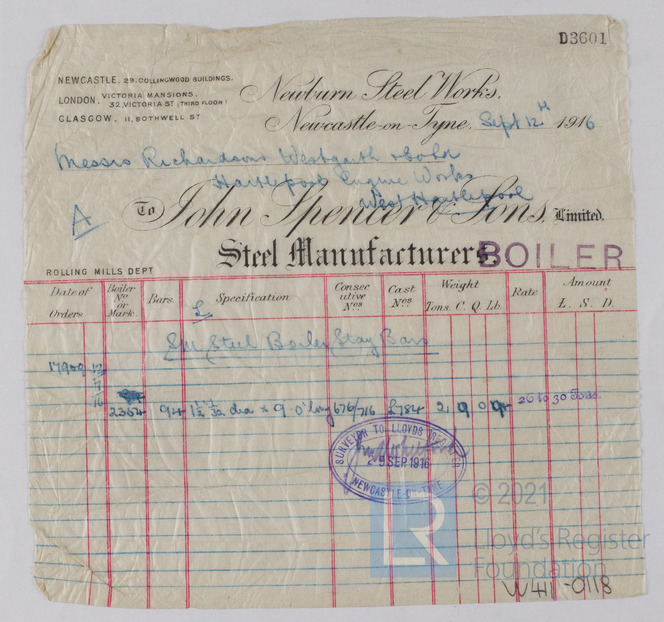 D3601
NEWCASTLE. 29, COLLINGWOOD BUILDINGS.
LONDON. VICTORIA MANSIONS. 32, VICTORIA ST (THIRD FLOOR)
GLASGOW. 11, BOTHWELL ST
Newburn Steel Works.
Newcastle-on-Tyne. Sept 12th 1916
Messrs Richardsons Westgarth & Co Ld
Hartlepool Engine Works
West Hartlepool
A
To John Spencer & Sons, Limited.
Steel Manufacturers
BOILER
ROLLING MILLS DEPT
Date of Orders
Boiler No or Mark.
Bars.
Specification
Consecutive Nos
Cast Nos
Weight
Tons. C. Q. Lb.
Rate
Amount
L. S. D.
Steel Boiler Stay Bars
17909
2354 94 dia x 9 0" long 676/716 £784 2 9 0 26 to 30 Tons.
SURVEYOR TO LLOYDS
29 SEP 1916
NEWCASTLE-ON-TYNE
LR
© 2021
Lloyd's Register
Foundation
W411-0118